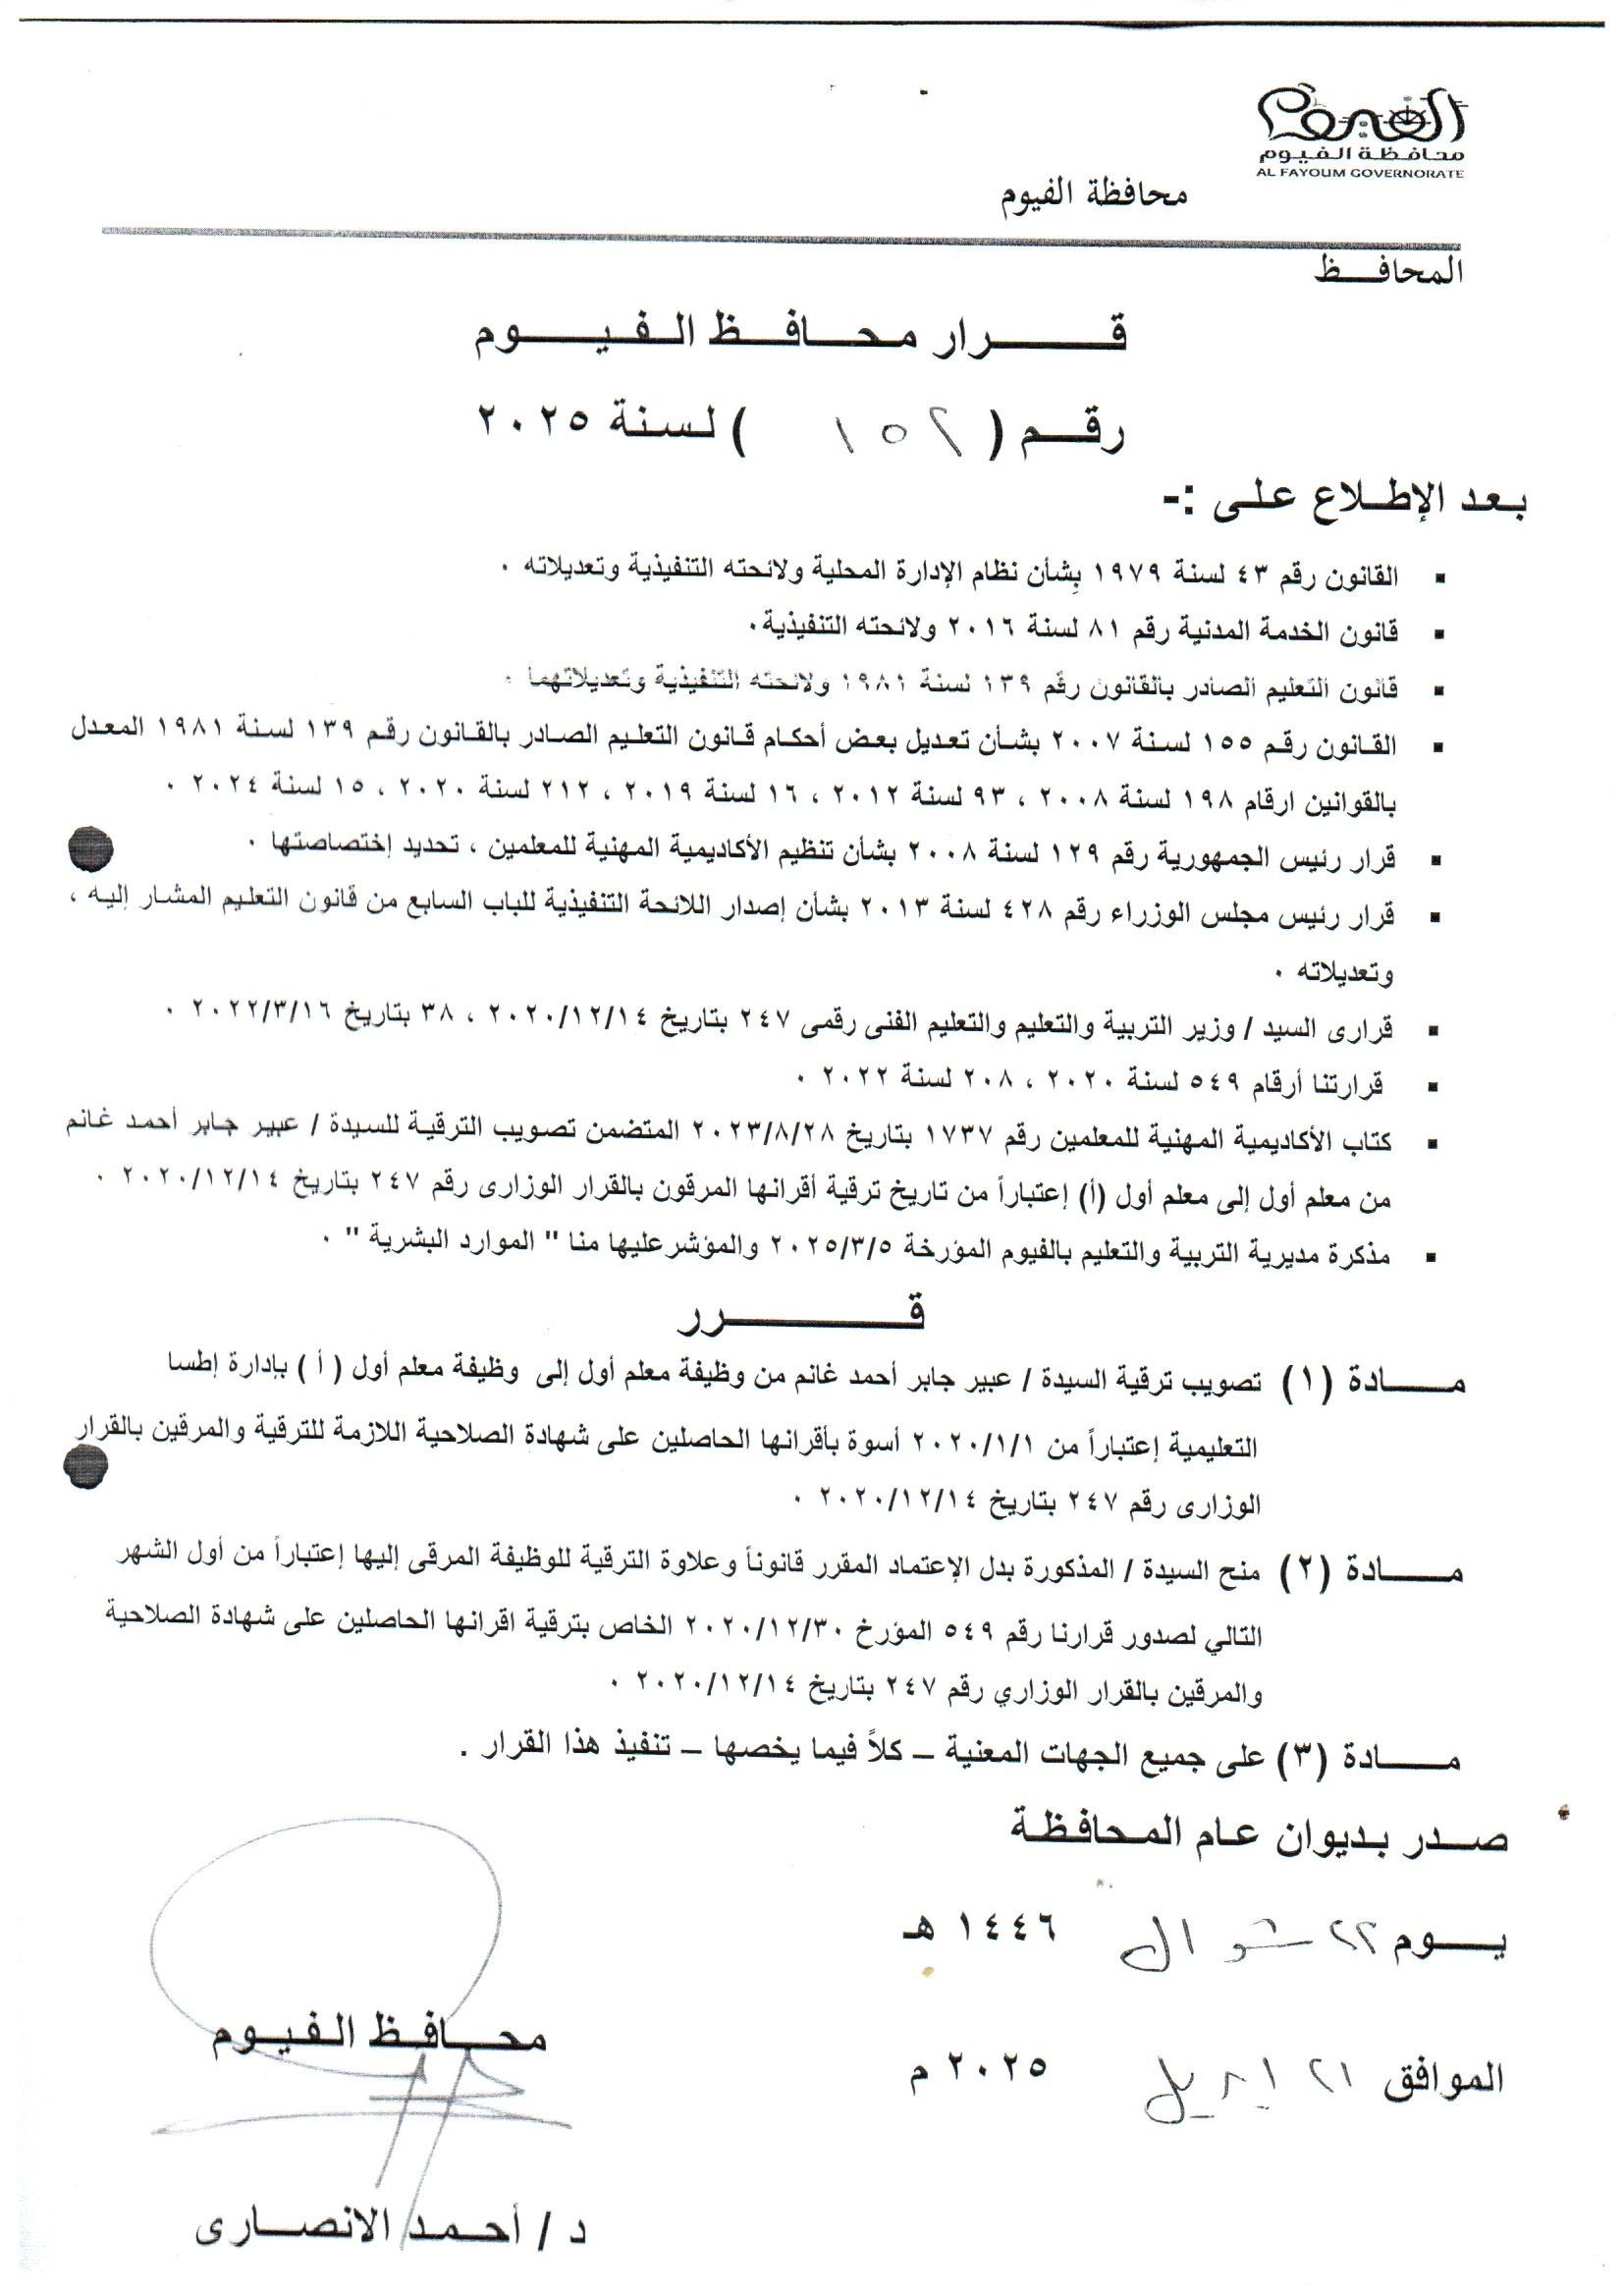 الفيوم
محافظة الفيوم
AL FAYOUM GOVERNORATE
محافظة الفيوم
المحافظ
قرار محافظ الفيوم
رقم ( ١٥٢ ) لسنة ٢٠٢٥
بعد الإطلاع على :-
▪ القانون رقم ٤٣ لسنة ١٩٧٩ بِشأن نظام الإدارة المحلية ولائحته التنفيذية وتعديلاته .
▪ قانون الخدمة المدنية رقم ٨١ لسنة ٢٠١٦ ولائحته التنفيذية.
▪ قانون التعليم الصادر بالقانون رقم ١٣٩ لسنة ١٩٨١ ولائحته التنفيذية وتعديلاتهما .
▪ القانون رقم ١٥٥ لسنة ٢٠٠٧ بشأن تعديل بعض أحكام قانون التعليم الصادر بالقانون رقم ١٣٩ لسنة ١٩٨١ المعدل
بالقوانين ارقام ١٩٨ لسنة ٢٠٠٨ ، ٩٣ لسنة ٢٠١٢ ، ١٦ لسنة ٢٠١٩ ، ٢١٢ لسنة ٢٠٢٠ ، ١٥ لسنة ٢٠٢٤ .
▪ قرار رئيس الجمهورية رقم ١٢٩ لسنة ٢٠٠٨ بشأن تنظيم الأكاديمية المهنية للمعلمين ، تحديد إختصاصتها .
▪ قرار رئيس مجلس الوزراء رقم ٤٢٨ لسنة ٢٠١٣ بشأن إصدار اللائحة التنفيذية للباب السابع من قانون التعليم المشار إليه ،
وتعديلاته .
▪ قرارى السيد / وزير التربية والتعليم والتعليم الفنى رقمى ٢٤٧ بتاريخ ٢٠٢٠/١٢/١٤ ، ٣٨ بتاريخ ٢٠٢٢/٣/١٦ .
▪ قرارتنا أرقام ٥٤٩ لسنة ٢٠٢٠ ، ٢٠٨ لسنة ٢٠٢٢ .
▪ كتاب الأكاديمية المهنية للمعلمين رقم ١٧٣٧ بتاريخ ٢٠٢٣/٨/٢٨ المتضمن تصويب الترقية للسيدة / عبير جابر أحمد غانم
من معلم أول إلى معلم أول (أ) إعتباراً من تاريخ ترقية أقرانها المرقون بالقرار الوزارى رقم ٢٤٧ بتاريخ ٢٠٢٠/١٢/١٤ .
▪ مذكرة مديرية التربية والتعليم بالفيوم المؤرخة ٢٠٢٥/٣/٥ والمؤشرعليها منا " الموارد البشرية " .
قرر
مادة (١) تصويب ترقية السيدة / عبير جابر أحمد غانم من وظيفة معلم أول إلى وظيفة معلم أول ( أ ) بإدارة إطسا
التعليمية إعتباراً من ٢٠٢٠/١/١ أسوة بأقرانها الحاصلين على شهادة الصلاحية اللازمة للترقية والمرقين بالقرار
الوزارى رقم ٢٤٧ بتاريخ ٢٠٢٠/١٢/١٤ .
مادة (٢) منح السيدة / المذكورة بدل الإعتماد المقرر قانوناً وعلاوة الترقية للوظيفة المرقى إليها إعتباراً من أول الشهر
التالي لصدور قرارنا رقم ٥٤٩ المؤرخ ٢٠٢٠/١٢/٣٠ الخاص بترقية اقرانها الحاصلين على شهادة الصلاحية
والمرقين بالقرار الوزاري رقم ٢٤٧ بتاريخ ٢٠٢٠/١٢/١٤ .
مادة (٣) على جميع الجهات المعنية – كلاً فيما يخصها – تنفيذ هذا القرار .
صدر بديوان عام المحافظة
يوم ٢٢ شوال ١٤٤٦ هـ
الموافق ٢١ ابريل ٢٠٢٥ م
محافظ الفيوم
د / أحمد الانصارى